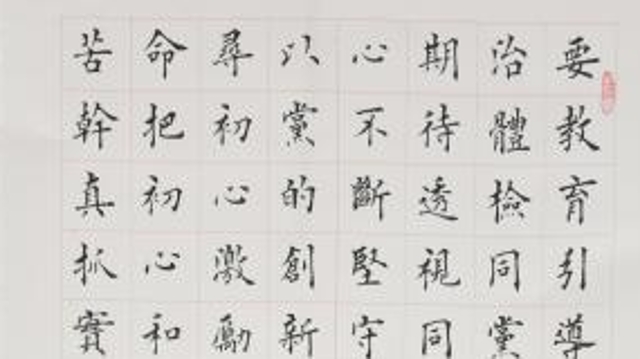 要教育引導
治體檢同黨
期待透視同
心不斷堅守
以黨的創新
尋初心激勵
命把初心和
苦幹真抓實